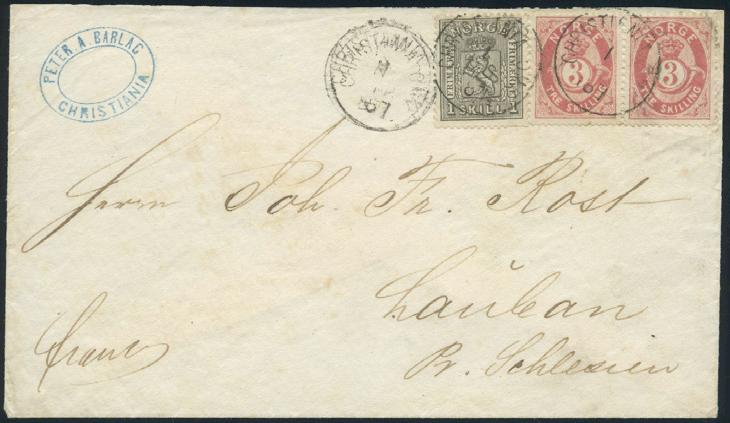 PETER A. BARLAG
CHRISTIANIA
CHRISTIANIA
NORGE
FRIMÆRKE
1 SKILL 1
NORGE
3
TRE SKILLING
NORGE
3
TRE SKILLING
Herrn Joh. Fr. Rost
Lauban
Pr. Schlesien
franco